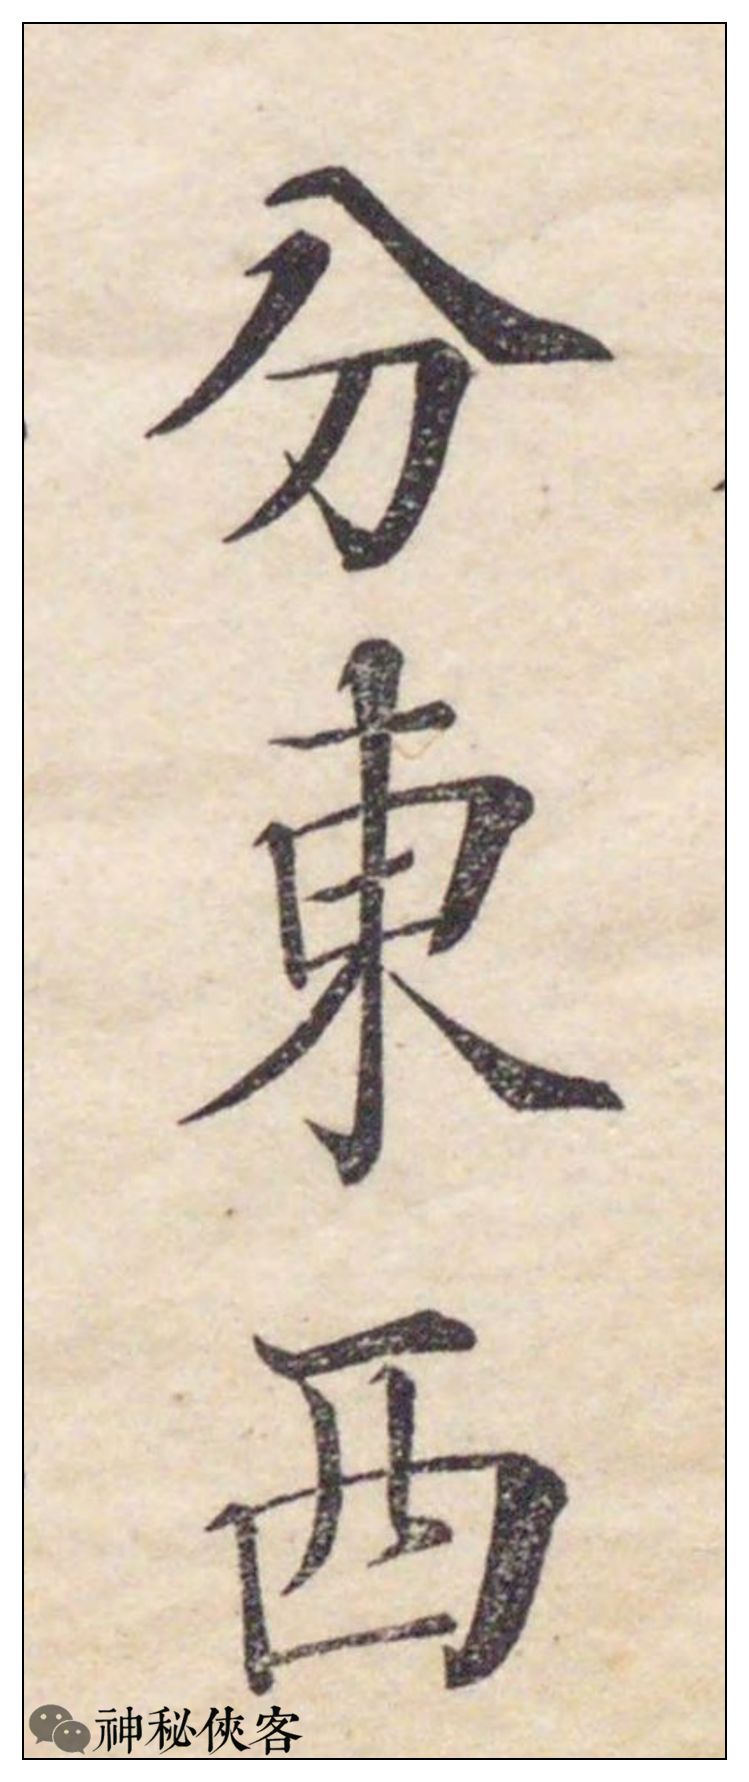 分東西
神秘俠客